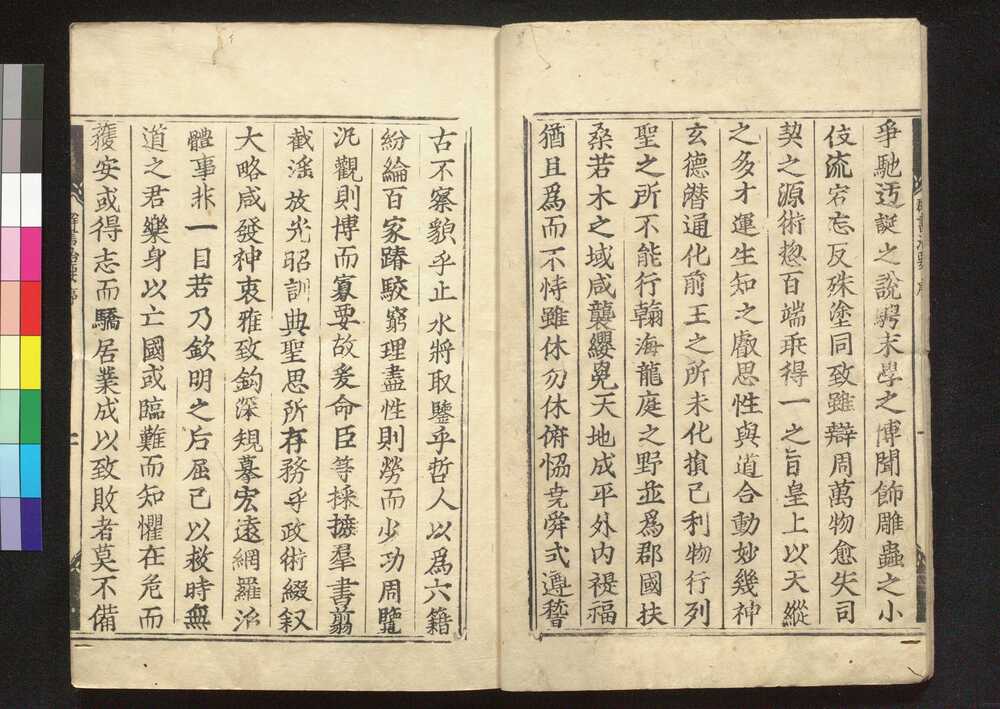 爭馳迃誕之說騁末學之博聞飾雕蟲之小
伎流宕忘反殊塗同致雖辯周萬物愈失司
契之源術惣百端乖得一之旨皇上以天縱
之多才運生知之叡思性與道合動妙幾神
玄德潛通化前王之所未化損己利物行列
聖之所不能行翰海龍庭之野並爲郡國扶
桑若木之域咸襲纓冕天地成平外內禔福
猶且爲而不恃雖休勿休俯恊堯舜式遵稽
古不察貌乎止水將取鑒乎哲人以爲六籍
紛綸百家踳駮窮理盡性則勞而少功周覽
汎觀則博而寡要故爰命臣等採摭羣書翦
截滛放光昭訓典聖思所存務乎政術綴叙
大略咸發神衷雅致鈎深規摹宏遠網羅治
體事非一目若乃欽明之后屈己以救時無
道之君樂身以亡國或臨難而知懼在危而
獲安或得志而驕居業成以致敗者莫不備
群書治要序
二